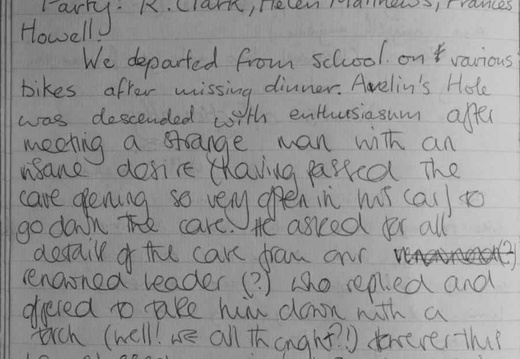 Party: R. Clark, Helen Matthews, Frances
Howell.
We departed from school on various
bikes after missing dinner. Avelin's Hole
was descended with enthusiasum after
meeting a strange man with an
insane desire (having passed the
cave opening so very often in his car) to
go down the cave. He asked for all
details of the cave from our
renowned leader (?) who replied and
offered to take him down with a
torch (well! we all thought?!)